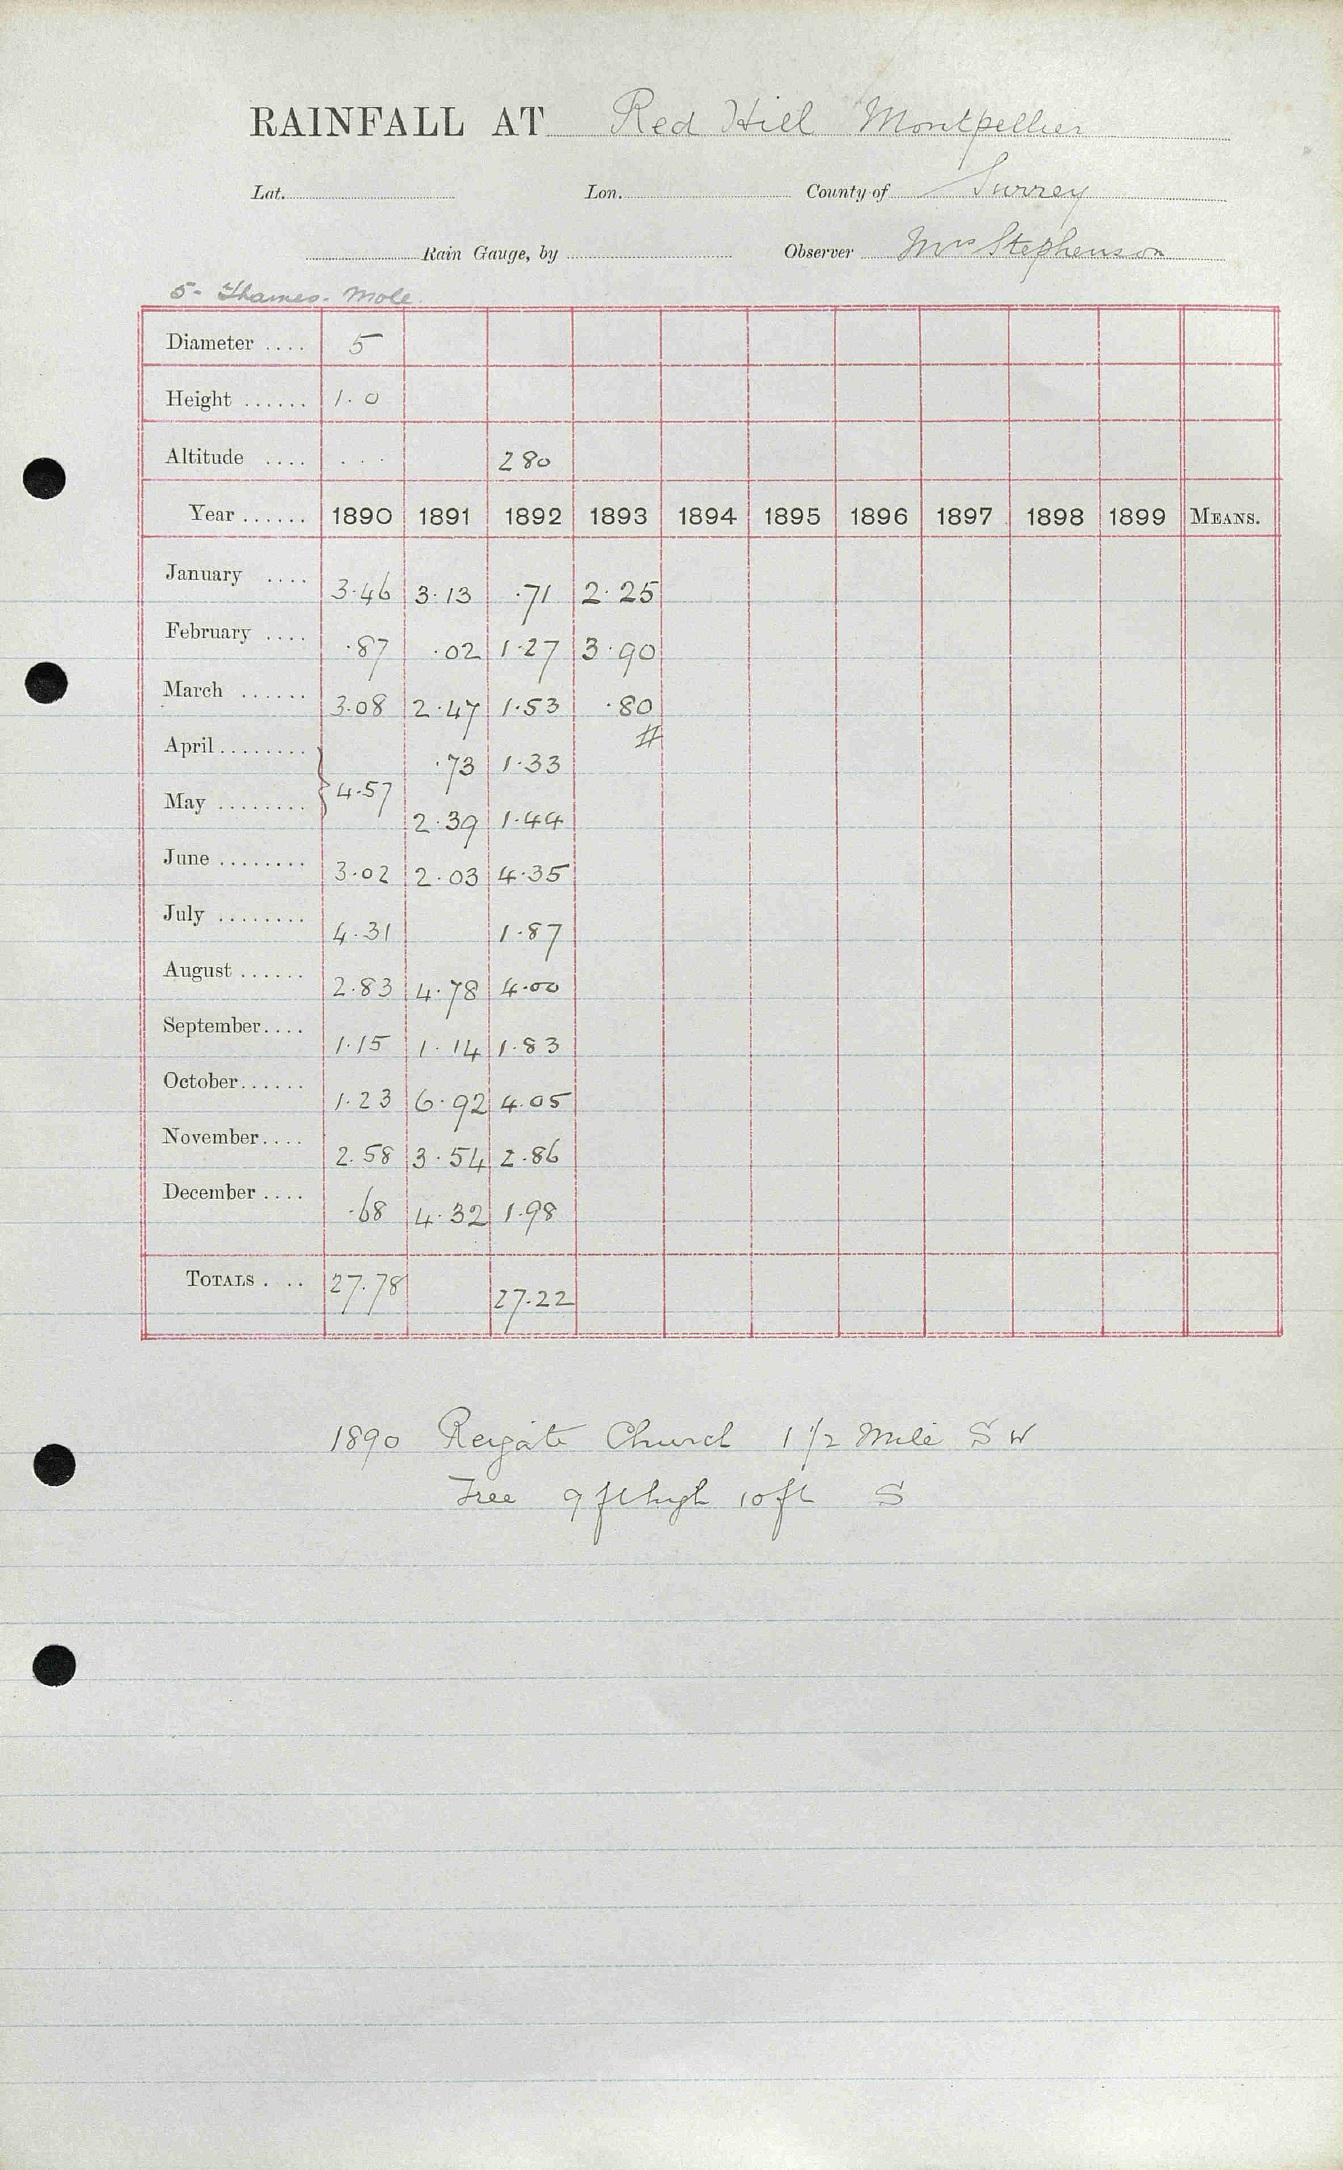 RAINFALL AT Red Hill Montpellier
Lat. Lon. County of Surrey
Rain Gauge, by Observer Mrs Stephenson
5- Thames. Mole.
Diameter .... 5
Height ...... 1.0
Altitude .... ... 280
Year ...... 1890 1891 1892 1893 1894 1895 1896 1897 1898 1899 MEANS.
January .... 3.46 3.13 .71 2.25
February .... .87 .02 1.27 3.90
March ...... 3.08 2.47 1.53 .80
#
April ........ .73 1.33
} 4.57
May ........ 2.39 1.44
June ........ 3.02 2.03 4.35
July ........ 4.31 1.87
August ...... 2.83 4.78 4.00
September.... 1.15 1.14 1.83
October...... 1.23 6.92 4.05
November.... 2.58 3.54 2.86
December .... .68 4.32 1.98
TOTALS . .. 27.78 27.22
1890 Reigate Church 1 1/2 Mile S W
Tree 9 ft high 10 ft S